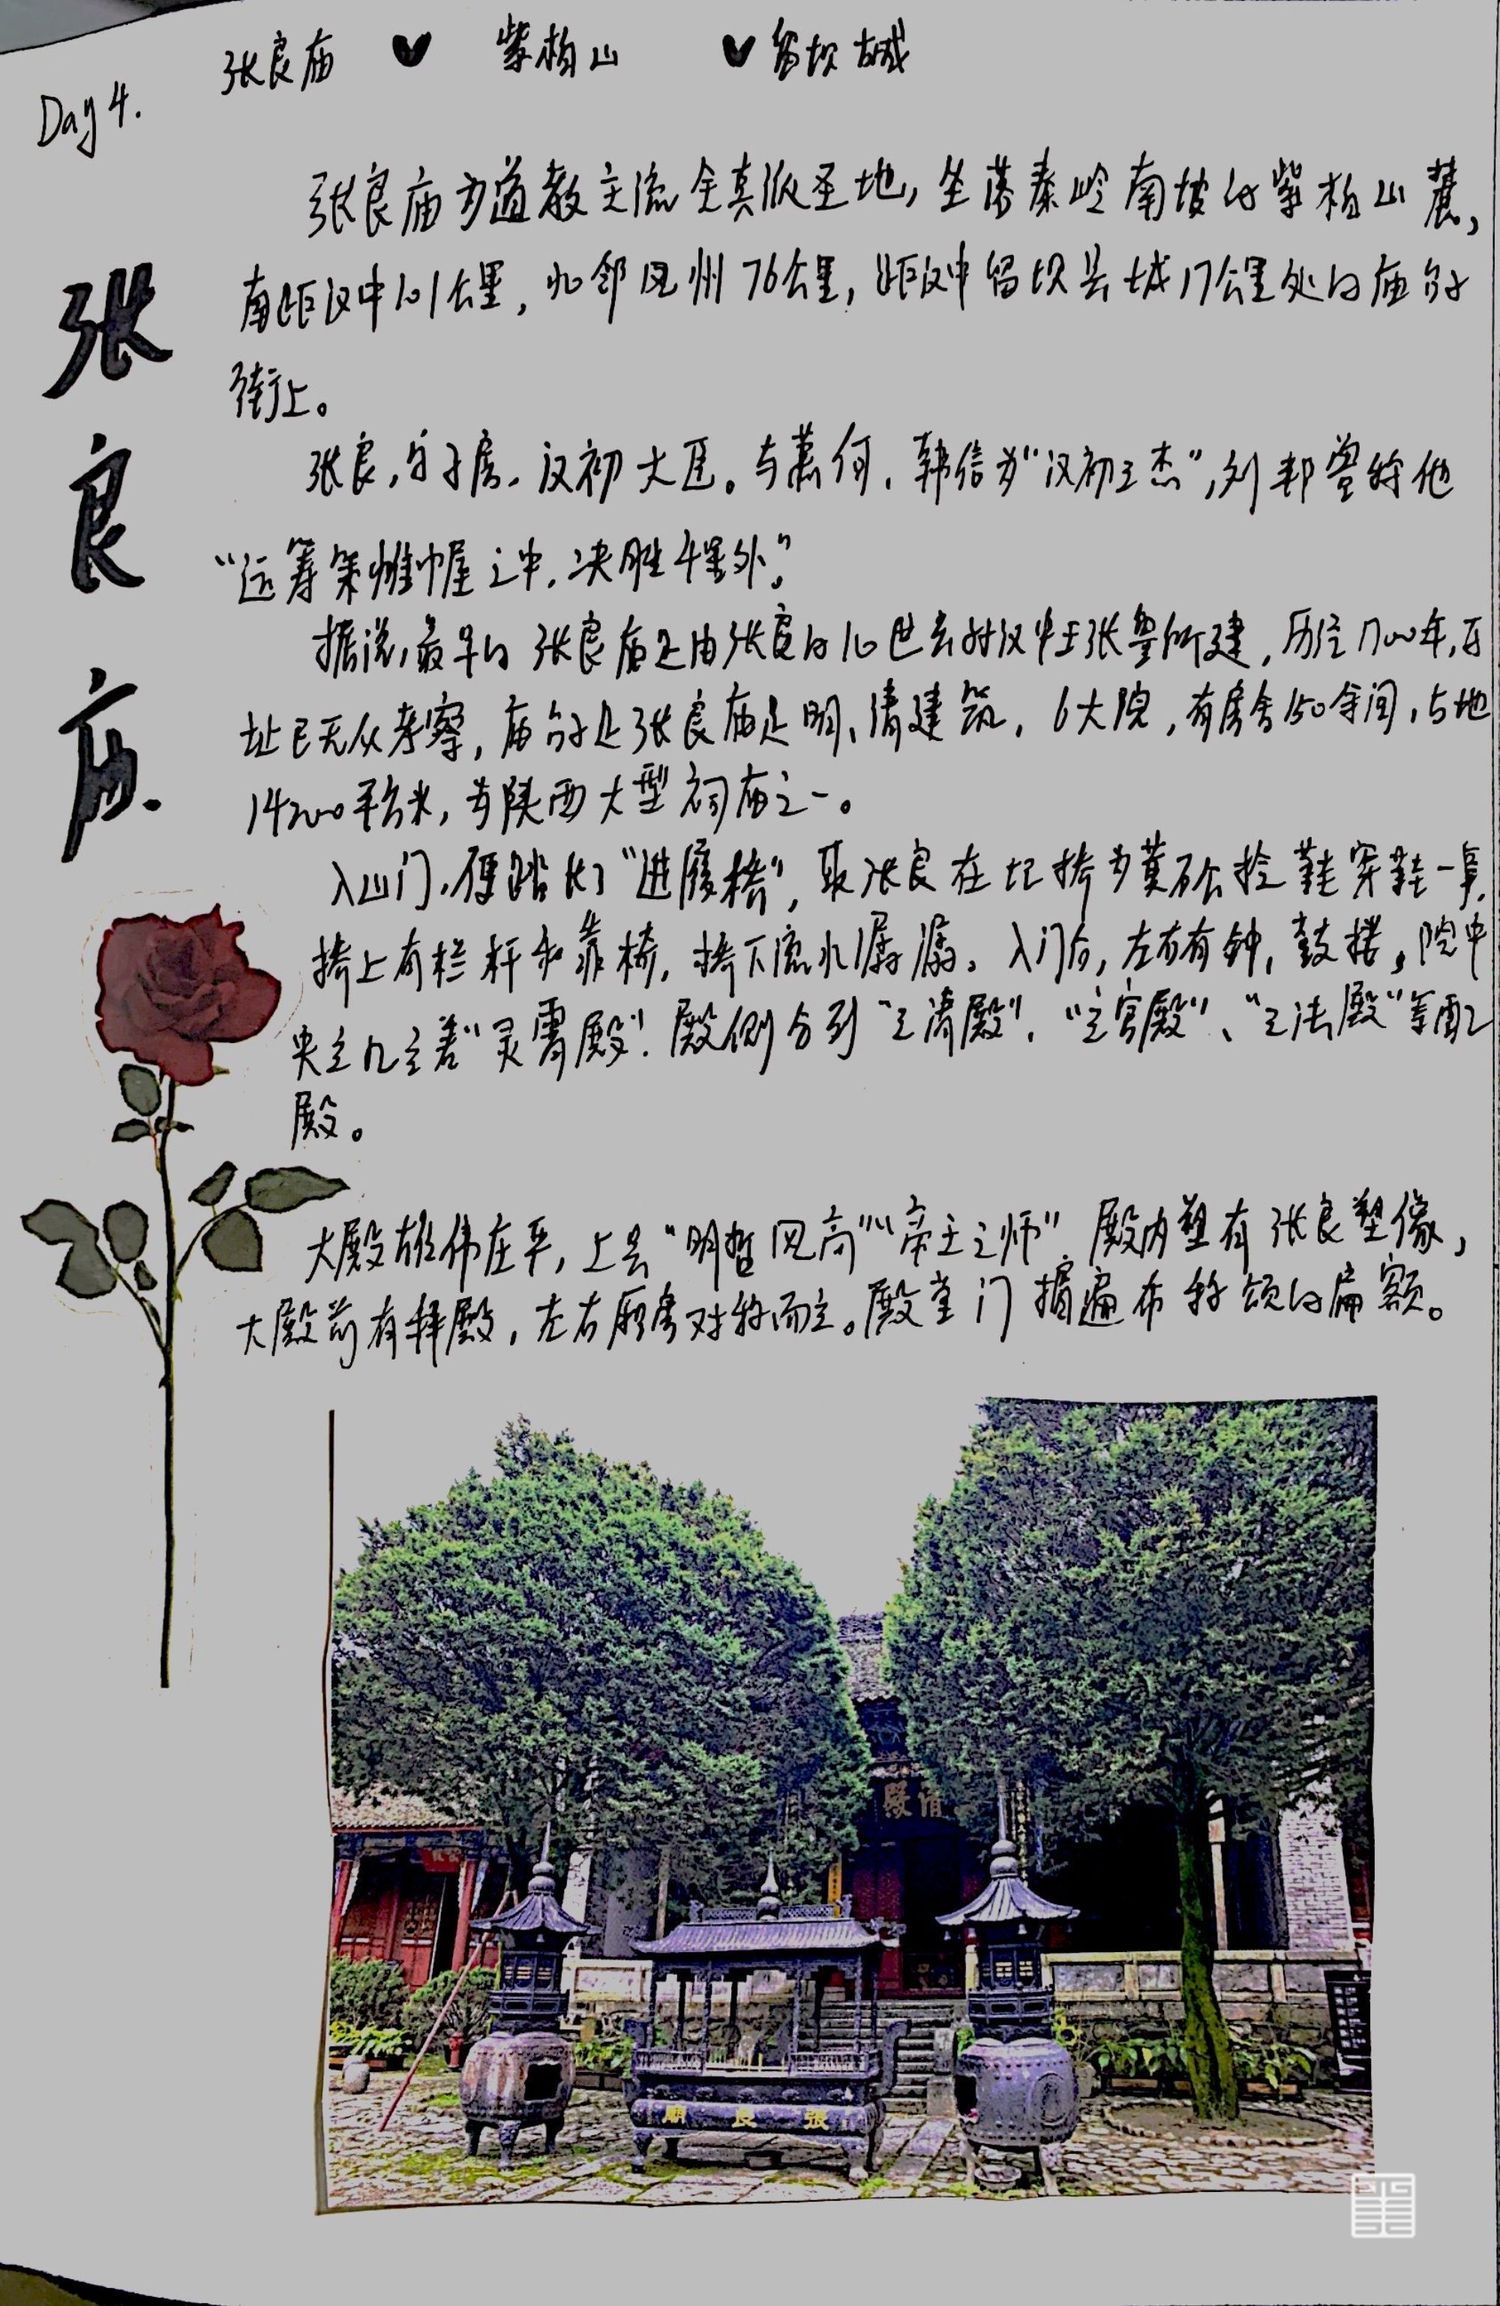 张良庙 紫柏山 留坝城
Day 4.
张良庙
张良庙为道教主流全真派圣地，坐落秦岭南坡的紫柏山麓，
南距汉中101公里，北邻凤州76公里，距汉中留坝县城17公里处的庙台子
街上。
张良，字子房，汉初大臣。与萧何、韩信为“汉初三杰”，刘邦曾称他
“运筹策帷幄之中，决胜千里外。”
据说，最早的张良庙是由张良的10世玄孙汉中王张鲁所建，历经1700年，
址已无从考察，庙台子张良庙是明、清建筑，6大院，有房舍150余间，占地
14200平方米，为陕西大型祠庙之一。
入山门，便踏上了“进履桥”，取张良在圯桥为黄石公捡鞋穿鞋一事，
桥上有栏杆和靠椅，桥下流水潺潺。入门后，左右有钟，鼓楼，院中
央立着“灵霄殿”！殿侧分列“三清殿”、“三官殿”、“三法殿”等配
殿。
大殿雄伟庄严，上有“明哲风高”“帝王之师” 殿内塑有张良塑像，
大殿前有拜殿，左右厢房对称而立。殿堂门楣遍布称颂的匾额。
殿清
廟良張